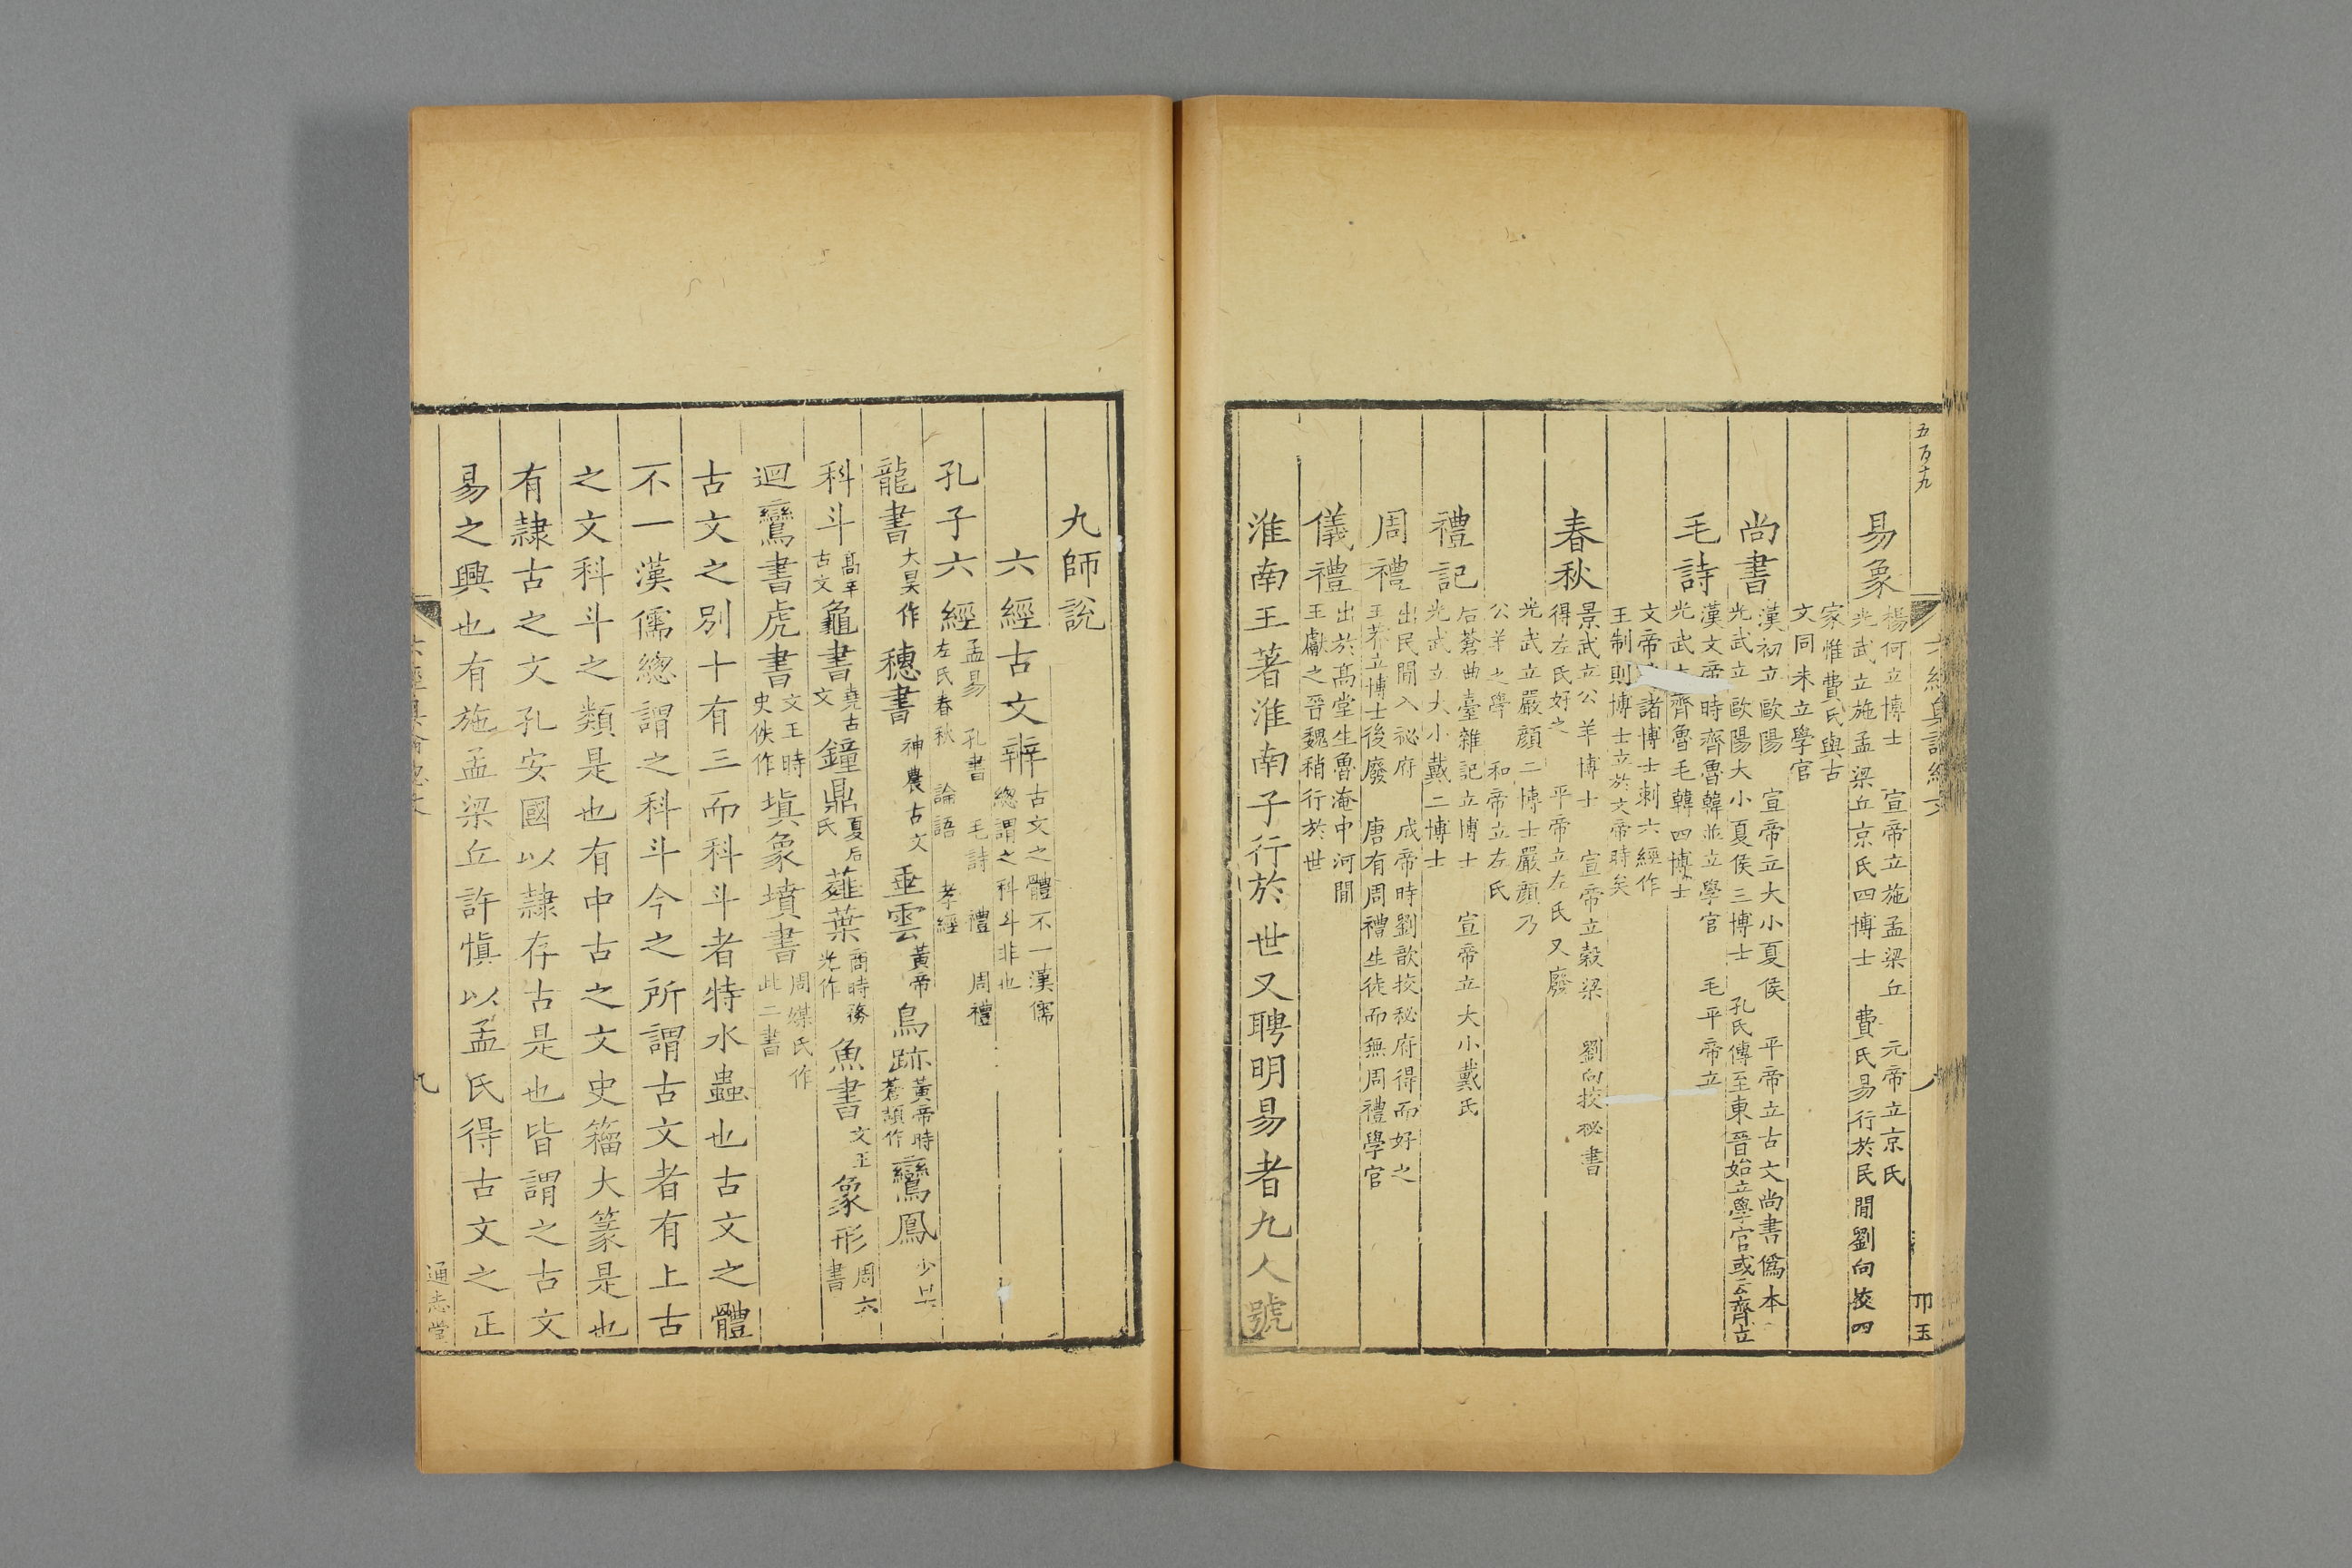 五百十九
易象
楊何立博士　宣帝立施孟梁丘　元帝立京氏
光武立施孟梁丘京氏四博士　費氏易行於民間劉向挍四
家惟費氏與古
文同未立學官
尚書
漢初立歐陽　宣帝立大小夏侯　平帝立古文尚書僞本
光武立歐陽大小夏侯三博士　孔氏傳至東晉始立學官或云齊立
毛詩
漢文帝時齊魯韓並立學官　毛平帝立
光武　齊魯毛韓四博士
文帝　諸博士刺六經作
王制則博士立於文帝時矣
春秋
景武立公羊博士　宣帝立穀梁　劉向挍祕書
得左氏好之　平帝立左氏又廢
光武立嚴顔二博士嚴顔乃
公羊之學　和帝立左氏
禮記
后蒼曲臺雜記立博士　宣帝立大小戴氏
光武立大小戴二博士
周禮
出民間入祕府　成帝時劉歆挍秘府得而好之
王莽立博士後廢　唐有周禮生徒而無周禮學官
儀禮
出於髙堂生魯淹中河間
王獻之晉魏稍行於世
淮南王著淮南子行於世又聘明易者九人號
九師說
六經古文辨
古文之體不一漢儒
總謂之科斗非也
孔子六經
孟易　孔書　毛詩　禮　周禮
左氏春秋　論語　孝經
龍書大昊作穗書神農古文垂雲黃帝鳥跡黃帝時蒼頡作鸞鳳少昊
科斗髙辛古文龜書堯古文鐘鼎夏后氏薤葉商時務光作魚書文王象形周六書
迴鸞書虎書文王時史佚作塡象墳書周媒氏作此二書
古文之別十有三而科斗者特水蟲也古文之體
不一漢儒總謂之科斗今之所謂古文者有上古
之文科斗之類是也有中古之文史籀大篆是也
有隷古之文孔安國以隷存古是也皆謂之古文
易之興也有施孟梁丘許愼以孟氏得古文之正
九
通志堂